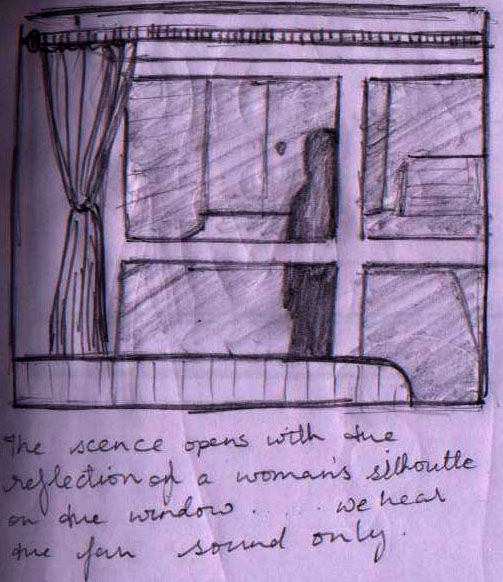 The scence opens with the
reflection of a woman's silhoutte
on the window..... we hear
the fan sound only.